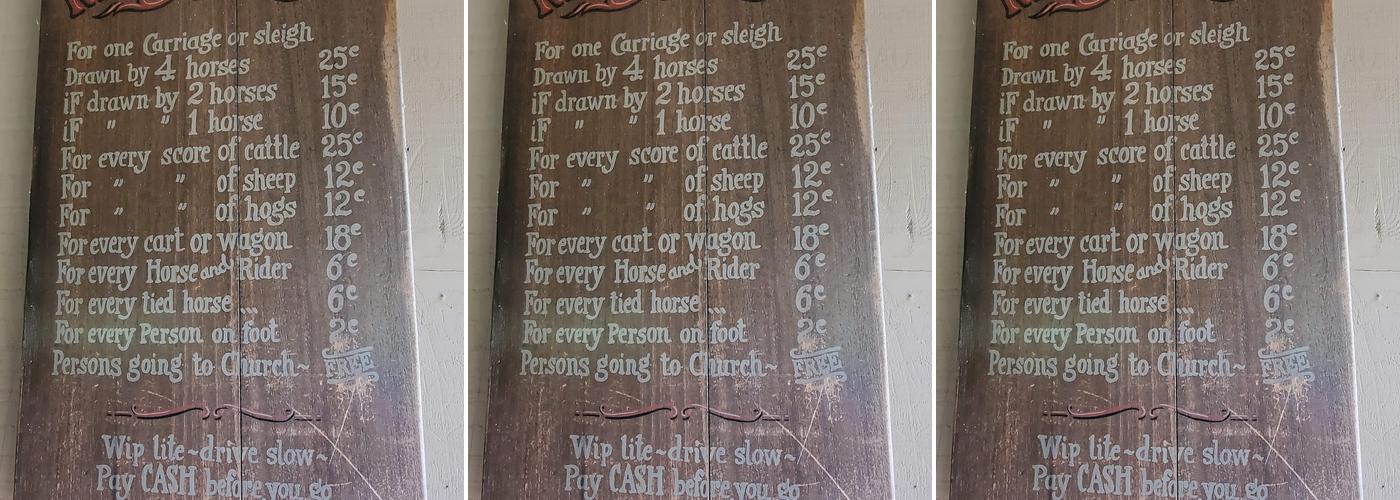 For one Carriage or sleigh
Drawn by 4 horses 25¢
iF drawn by 2 horses 15¢
iF " " 1 horse 10¢
For every score of cattle 25¢
For " " of sheep 12¢
For " " of hogs 12¢
For every cart or wagon 18¢
For every Horse and Rider 6¢
For every tied horse ... 6¢
For every Person on foot 2¢
Persons going to Church~ FREE
Wip lite~drive slow~
Pay CASH before you go
For one Carriage or sleigh
Drawn by 4 horses 25¢
iF drawn by 2 horses 15¢
iF " " 1 horse 10¢
For every score of cattle 25¢
For " " of sheep 12¢
For " " of hogs 12¢
For every cart or wagon 18¢
For every Horse and Rider 6¢
For every tied horse ... 6¢
For every Person on foot 2¢
Persons going to Church~ FREE
Wip lite~drive slow~
Pay CASH before you go
For one Carriage or sleigh
Drawn by 4 horses 25¢
iF drawn by 2 horses 15¢
iF " " 1 horse 10¢
For every score of cattle 25¢
For " " of sheep 12¢
For " " of hogs 12¢
For every cart or wagon 18¢
For every Horse and Rider 6¢
For every tied horse ... 6¢
For every Person on foot 2¢
Persons going to Church~ FREE
Wip lite~drive slow~
Pay CASH before you go